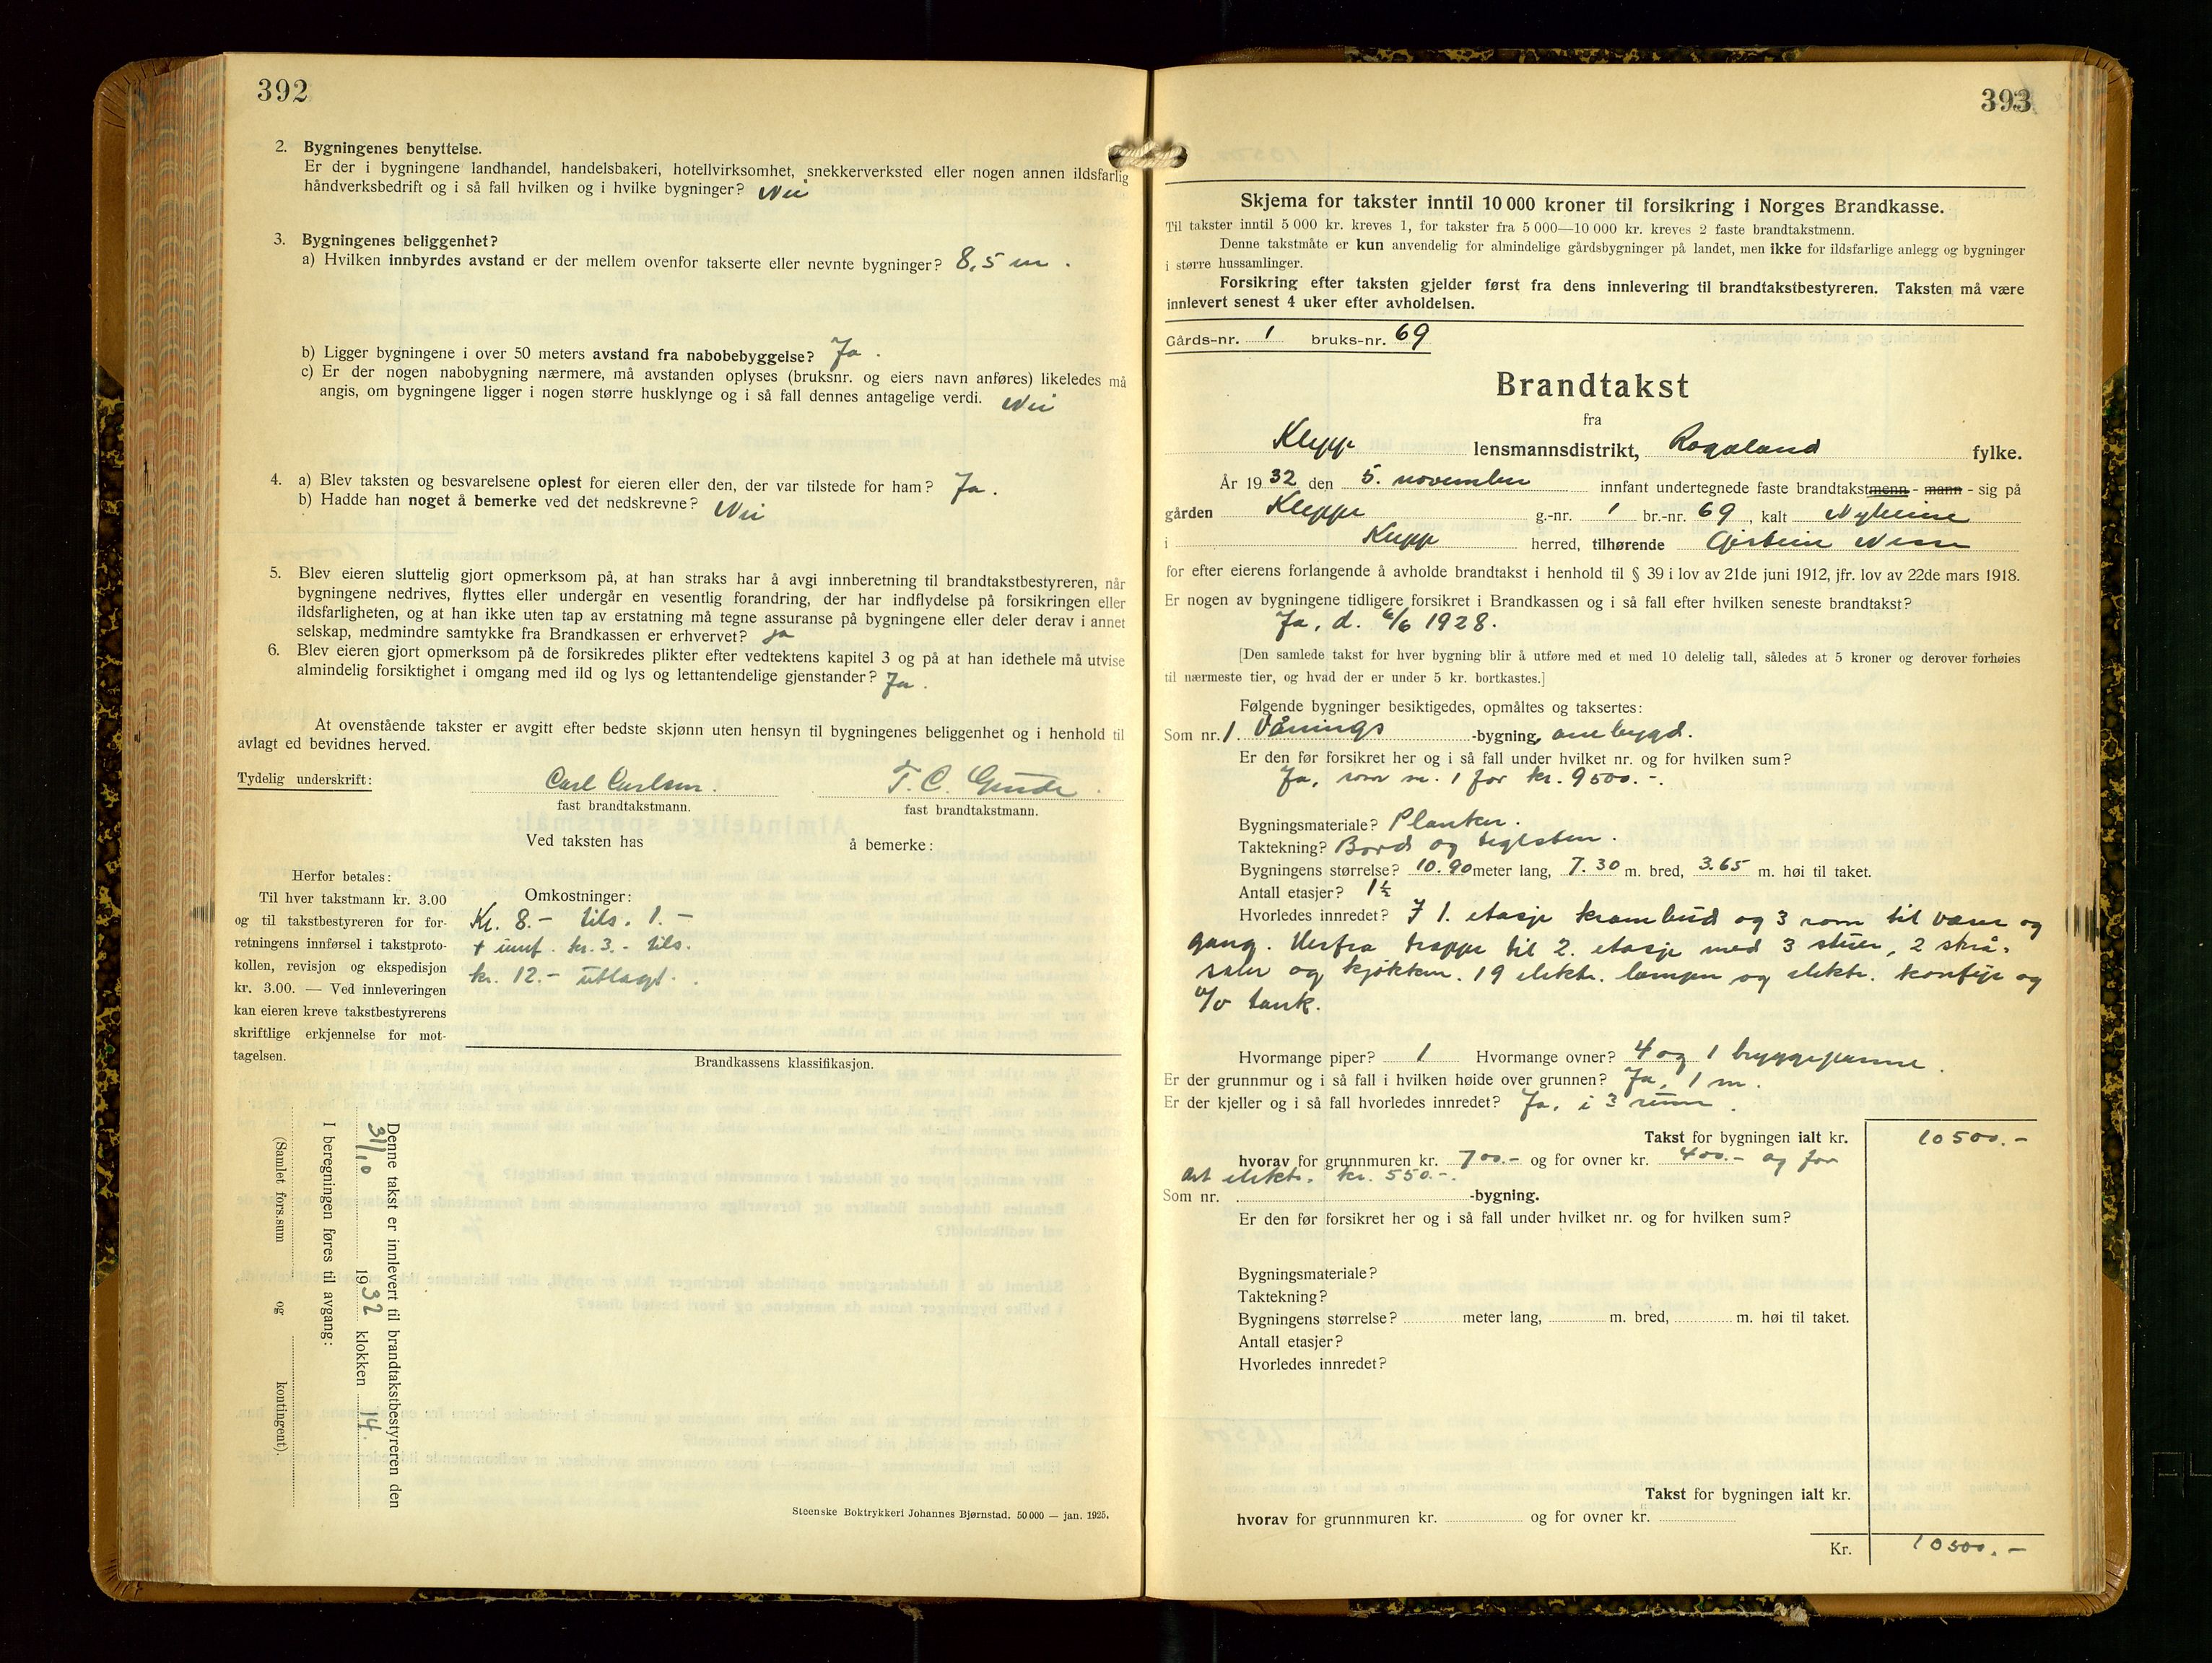 392
2. Bygningenes benyttelse.
Er der i bygningene landhandel, handelsbakeri, hotellvirksomhet, snekkerverksted eller nogen annen ildsfarlig
håndverksbedrift og i så fall hvilken og i hvilke bygninger? Nei
3. Bygningenes beliggenhet?
a) Hvilken innbyrdes avstand er der mellem ovenfor takserte eller nevnte bygninger? 8,5 m.
b) Ligger bygningene i over 50 meters avstand fra nabobebyggelse? Ja.
c) Er der nogen nabobygning nærmere, må avstanden oplyses (bruksnr. og eiers navn anføres) likeledes må
angis, om bygningene ligger i nogen større husklynge og i så fall dennes antagelige verdi. Nei
4. a) Blev taksten og besvarelsene oplest for eieren eller den, der var tilstede for ham? Ja.
b) Hadde han noget å bemerke ved det nedskrevne? Nei
5. Blev eieren sluttelig gjort opmerksom på, at han straks har å avgi innberetning til brandtakstbestyreren, når
bygningene nedrives, flyttes eller undergår en vesentlig forandring, der har indflydelse på forsikringen eller
ildsfarligheten, og at han ikke uten tap av erstatning må tegne assuranse på bygningene eller deler derav i annet
selskap, medmindre samtykke fra Brandkassen er erhvervet? ja
6. Blev eieren gjort opmerksom på de forsikredes plikter efter vedtektens kapitel 3 og på at han idethele må utvise
almindelig forsiktighet i omgang med ild og lys og lettantendelige gjenstander? Ja.
At ovenstående takster er avgitt efter bedste skjønn uten hensyn til bygningenes beliggenhet og i henhold til
avlagt ed bevidnes herved.
Tydelig underskrift: Carl Carlsen. T. C. Grude.
fast brandtakstmann. fast brandtakstmann.
Ved taksten has å bemerke:
Herfor betales:
Til hver takstmann kr. 3.00
og til takstbestyreren for for-
retningens innførsel i takstproto-
kollen, revisjon og ekspedisjon
kr. 3.00. — Ved innleveringen
kan eieren kreve takstbestyrerens
skriftlige erkjennelse for mot-
tagelsen.
Omkostninger:
Kr. 8.- tils. 1.-
+ innf. kr. 3.- tils.
kr. 12.- utlagt.
Brandkassens klassifikasjon.
Denne takst er innlevert til brandtakstbestyreren den
31/10 1932 klokken 14.
I beregningen føres til avgang:
(Samlet fors.sum og kontingent)
Steenske Boktrykkeri Johannes Bjørnstad. 50 000 — jan. 1925.
393
Skjema for takster inntil 10 000 kroner til forsikring i Norges Brandkasse.
Til takster inntil 5 000 kr. kreves 1, for takster fra 5 000—10 000 kr. kreves 2 faste brandtakstmenn.
Denne takstmåte er kun anvendelig for almindelige gårdsbygninger på landet, men ikke for ildsfarlige anlegg og bygninger
i større hussamlinger.
Forsikring efter taksten gjelder først fra dens innlevering til brandtakstbestyreren. Taksten må være
innlevert senest 4 uker efter avholdelsen.
Gårds-nr. 1 bruks-nr. 69
Brandtakst
fra
Klepp lensmannsdistrikt, Rogaland fylke.
År 1932 den 5. november innfant undertegnede faste brandtakstmenn - mann - sig på
gården Kleppe g.-nr. 1 br.-nr. 69, kalt Nyheim
i Klepp herred, tilhørende
for efter eierens forlangende å avholde brandtakst i henhold til § 39 i lov av 21de juni 1912, jfr. lov av 22de mars 1918.
Er nogen av bygningene tidligere forsikret i Brandkassen og i så fall efter hvilken seneste brandtakst?
Ja, d. 6/6 1928.
[Den samlede takst for hver bygning blir å utføre med et med 10 delelig tall, således at 5 kroner og derover forhøies
til nærmeste tier, og hvad der er under 5 kr. bortkastes.]
Følgende bygninger besiktigedes, opmåltes og taksertes:
Som nr. 1. Vånings -bygning, ombygd.
Er den før forsikret her og i så fall under hvilket nr. og for hvilken sum?
Ja, som nr. 1 for kr. 9500.-.
Bygningsmateriale? Planker.
Taktekning? Bord og teglsten.
Bygningens størrelse? 10.90 meter lang, 7.30 m. bred, 3.65 m. høi til taket.
Antall etasjer? 1½
Hvorledes innredet? I 1. etasje krambud og 3 rom til varer og
gang. Herfra trappe til 2. etasje med 3 stuer, 2 skrå-
saler og kjøkken. 19 elektr. lamper og elektr. komfyr og
v/v tank.
Hvormange piper? 1 Hvormange ovner? 4 og 1 bryggepanne.
Er der grunnmur og i så fall i hvilken høide over grunnen? Ja, 1 m.
Er der kjeller og i så fall hvorledes innredet? Ja, i 3 rum.
Takst for bygningen ialt kr. 10500.-
hvorav for grunnmuren kr. 700.- og for ovner kr. 400.- og for
det elektr. kr. 550.-.
Som nr. -bygning.
Er den før forsikret her og i så fall under hvilket nr. og for hvilken sum?
Bygningsmateriale?
Taktekning?
Bygningens størrelse? meter lang, m. bred, m. høi til taket.
Antall etasjer?
Hvorledes innredet?
Takst for bygningen ialt kr.
hvorav for grunnmuren kr. og for ovner kr.
Kr. 10500.-